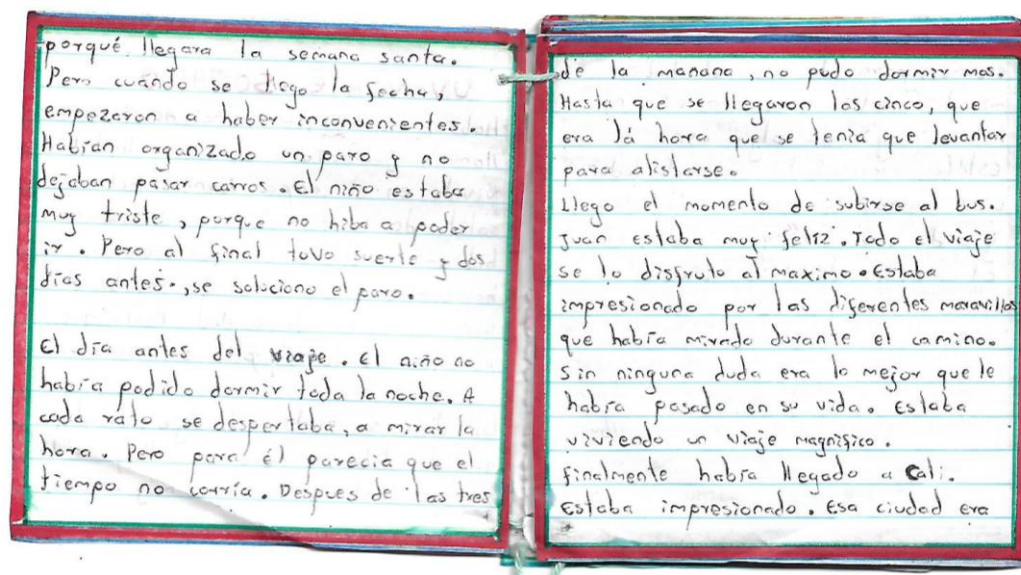 porqué llegara la semana santa.
Pero cuándo se llego la fecha,
empezaron a haber inconvenientes.
Habían organizado un paro y no
dejaban pasar carros. El niño estaba
muy triste, porque no hiba a poder
ir. Pero al final tuvo suerte y dos
días antes., se soluciono el paro.
El día antes del viaje. El niño no
había podido dormir toda la noche. A
cada rato se despertaba, a mirar la
hora. Pero para él parecia que el
tiempo no corría. Despues de las tres
de la manana, no pudo dormir mas.
Hasta que se llegaron las cinco, que
era lá hora que se tenia que levantar
para alistarse.
Llego el momento de subirse al bus.
Juan estaba muy feliz. Todo el viaje
se lo disfruto al maximo. Estaba
impresionado por las diferentes maravillas
que había mirado durante el camino.
Sin ninguna duda era lo mejor que le
había pasado en su vida. Estaba
viviendo un viaje magnifico.
Finalmente había llegado a Cali.
Estaba impresionado. Esa ciudad era